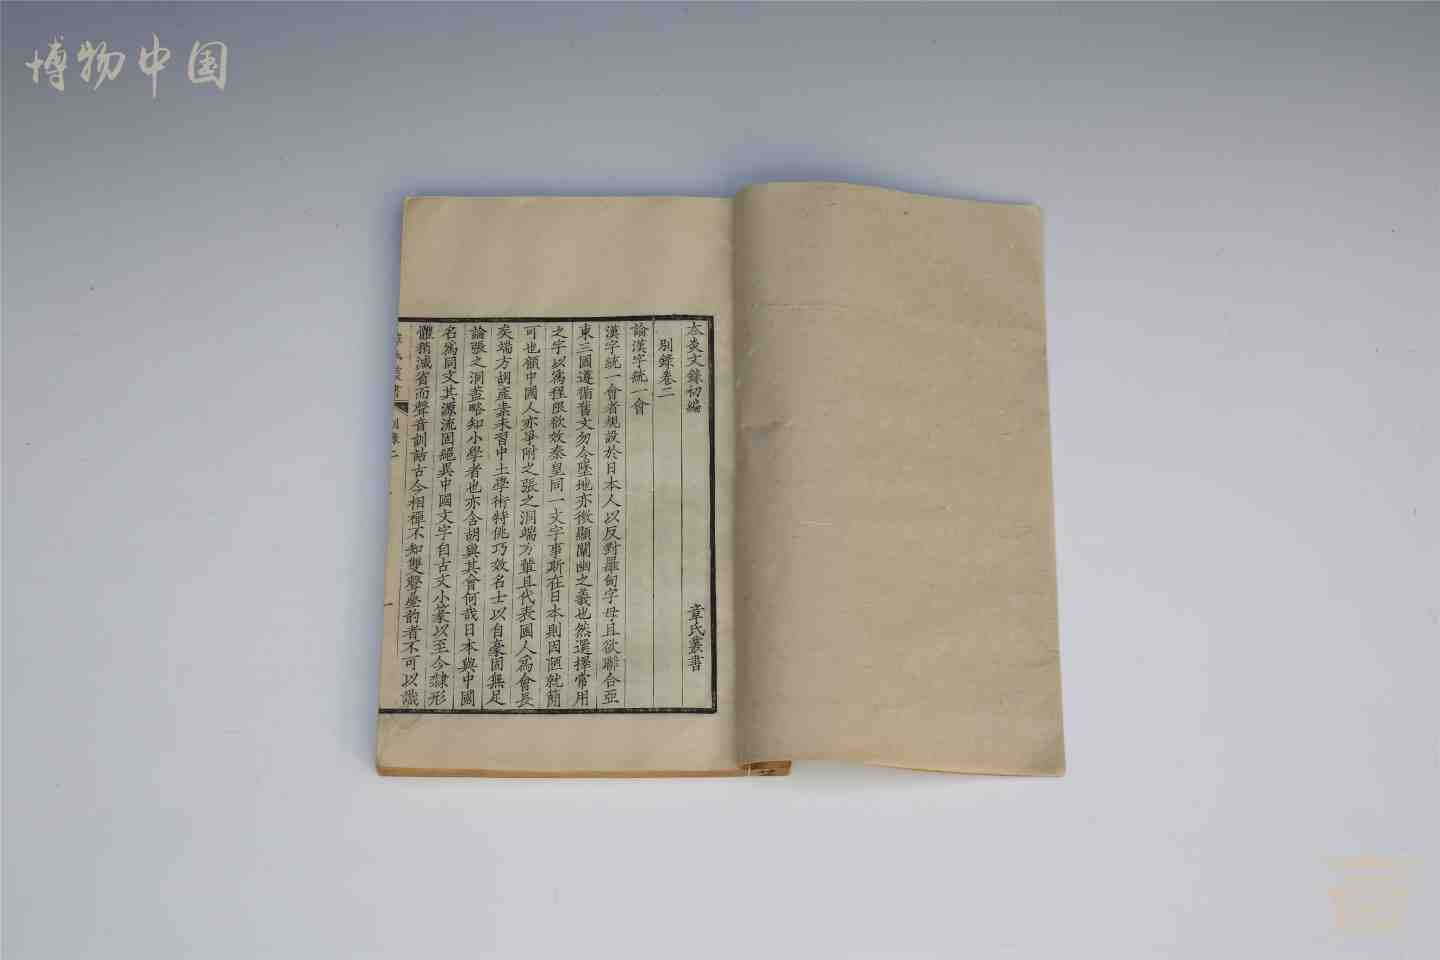 博物中国
太炎文錄初編 章氏叢書
別錄卷二
論漢字統一會
漢字統一會者規設於日本人以反對羅甸字母且欲聯合亞
東三國遵循舊文勿令墜地亦微顯闡幽之義也然選擇常用
之字以爲程限欲效秦皇同一文字事斯在日本則因陋就簡
可也顧中國人亦爭附之張之洞端方輩且代表國人爲會長
矣端方胡產素未習中土學術特佻巧效名士以自豪固無足
論張之洞葢略知小學者也亦含胡與其會何哉日本與中國
名爲同文其源流固絕異中國文字自古文小篆以至今隸形
體稍減省而聲音訓詁古今相禪不知雙聲疊韵者不可以識
章氏叢書 別錄二 一